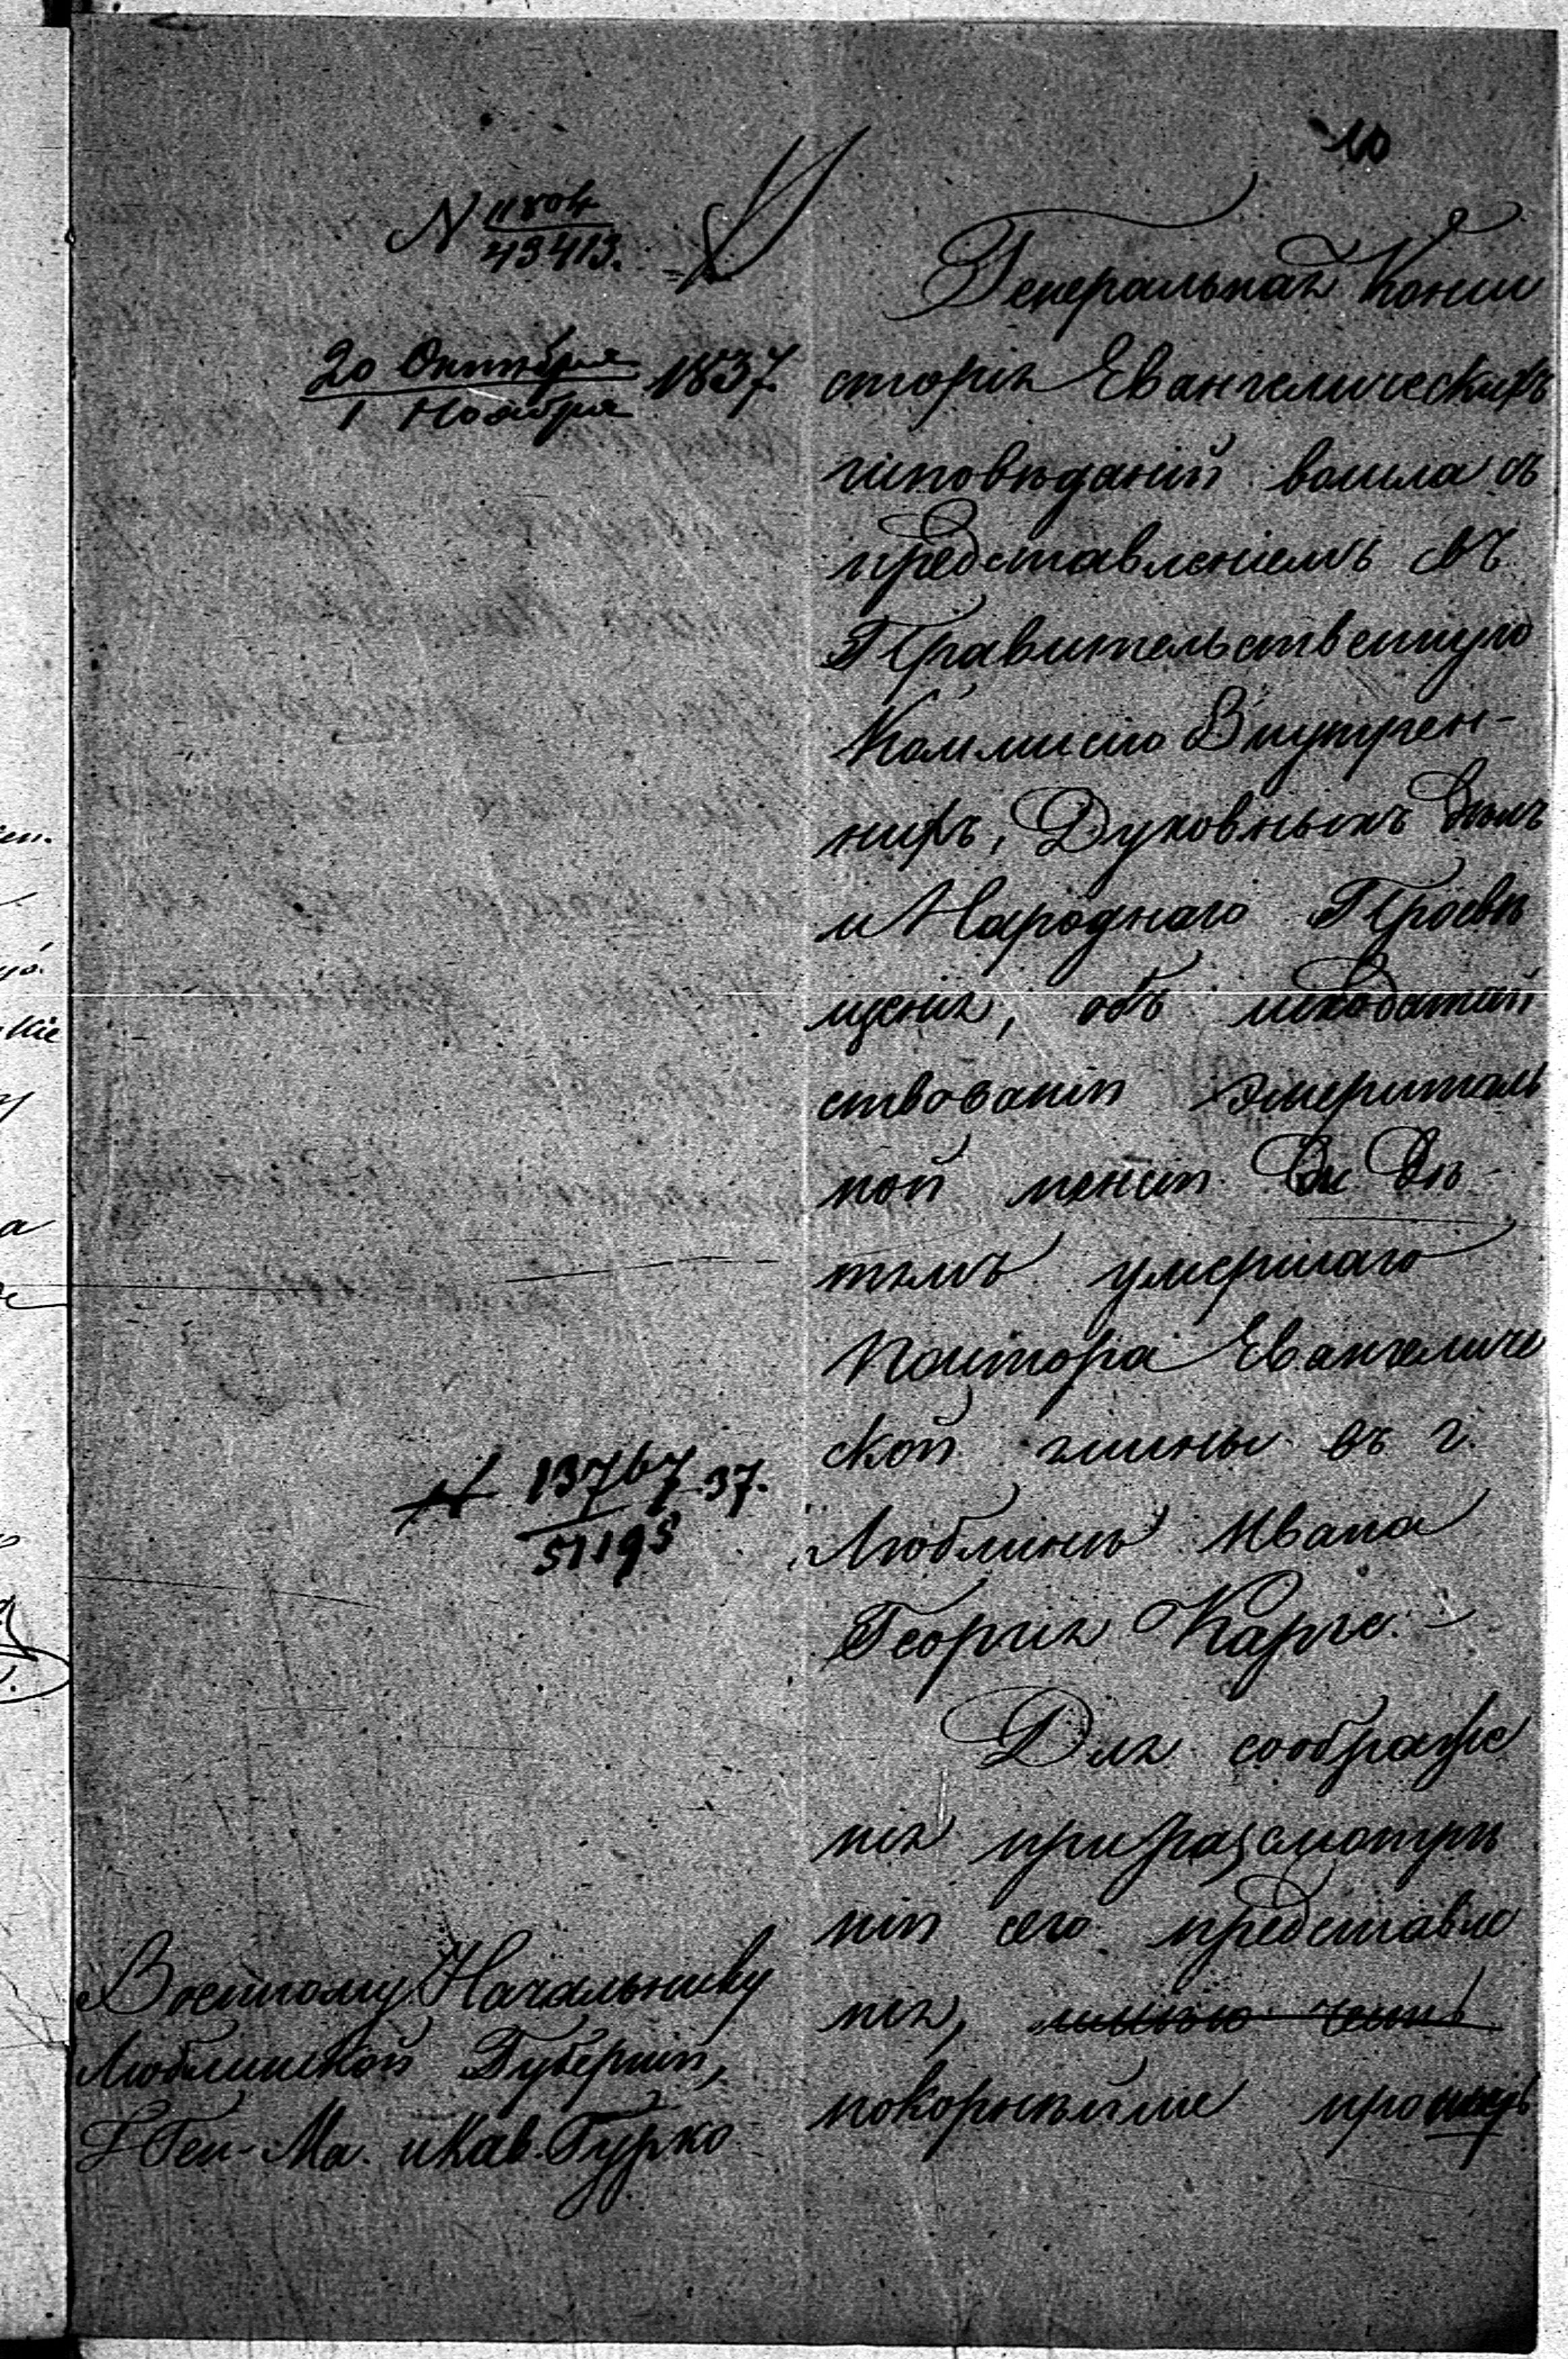 10
N 11804
43413.
20 Октября 1837.
1 Ноября
Генеральная Конси
сторія Евангелическихъ
исповѣданій вошла съ
представленіемъ въ
Правительственную
Коммисію Внутрен-
нихъ, Духовныхъ Дѣлъ
и Народнаго Просвѣ
щенія, объ исходатай
ствованіи эмериталь
ной пенсіи Дѣ
тямъ умершаго
Пастора Евангеличе
ской гмины въ г.
Люблинѣ Ивана
Георгія Карге.
N 13767 37.
51195
Для соображе
нія при разсмотрѣ
ніи сего представле
нія, имѣю честь
покорнѣйше
Военному Начальнику
Люблинской Губерніи,
Ген-Ма. и Кав. Гурко